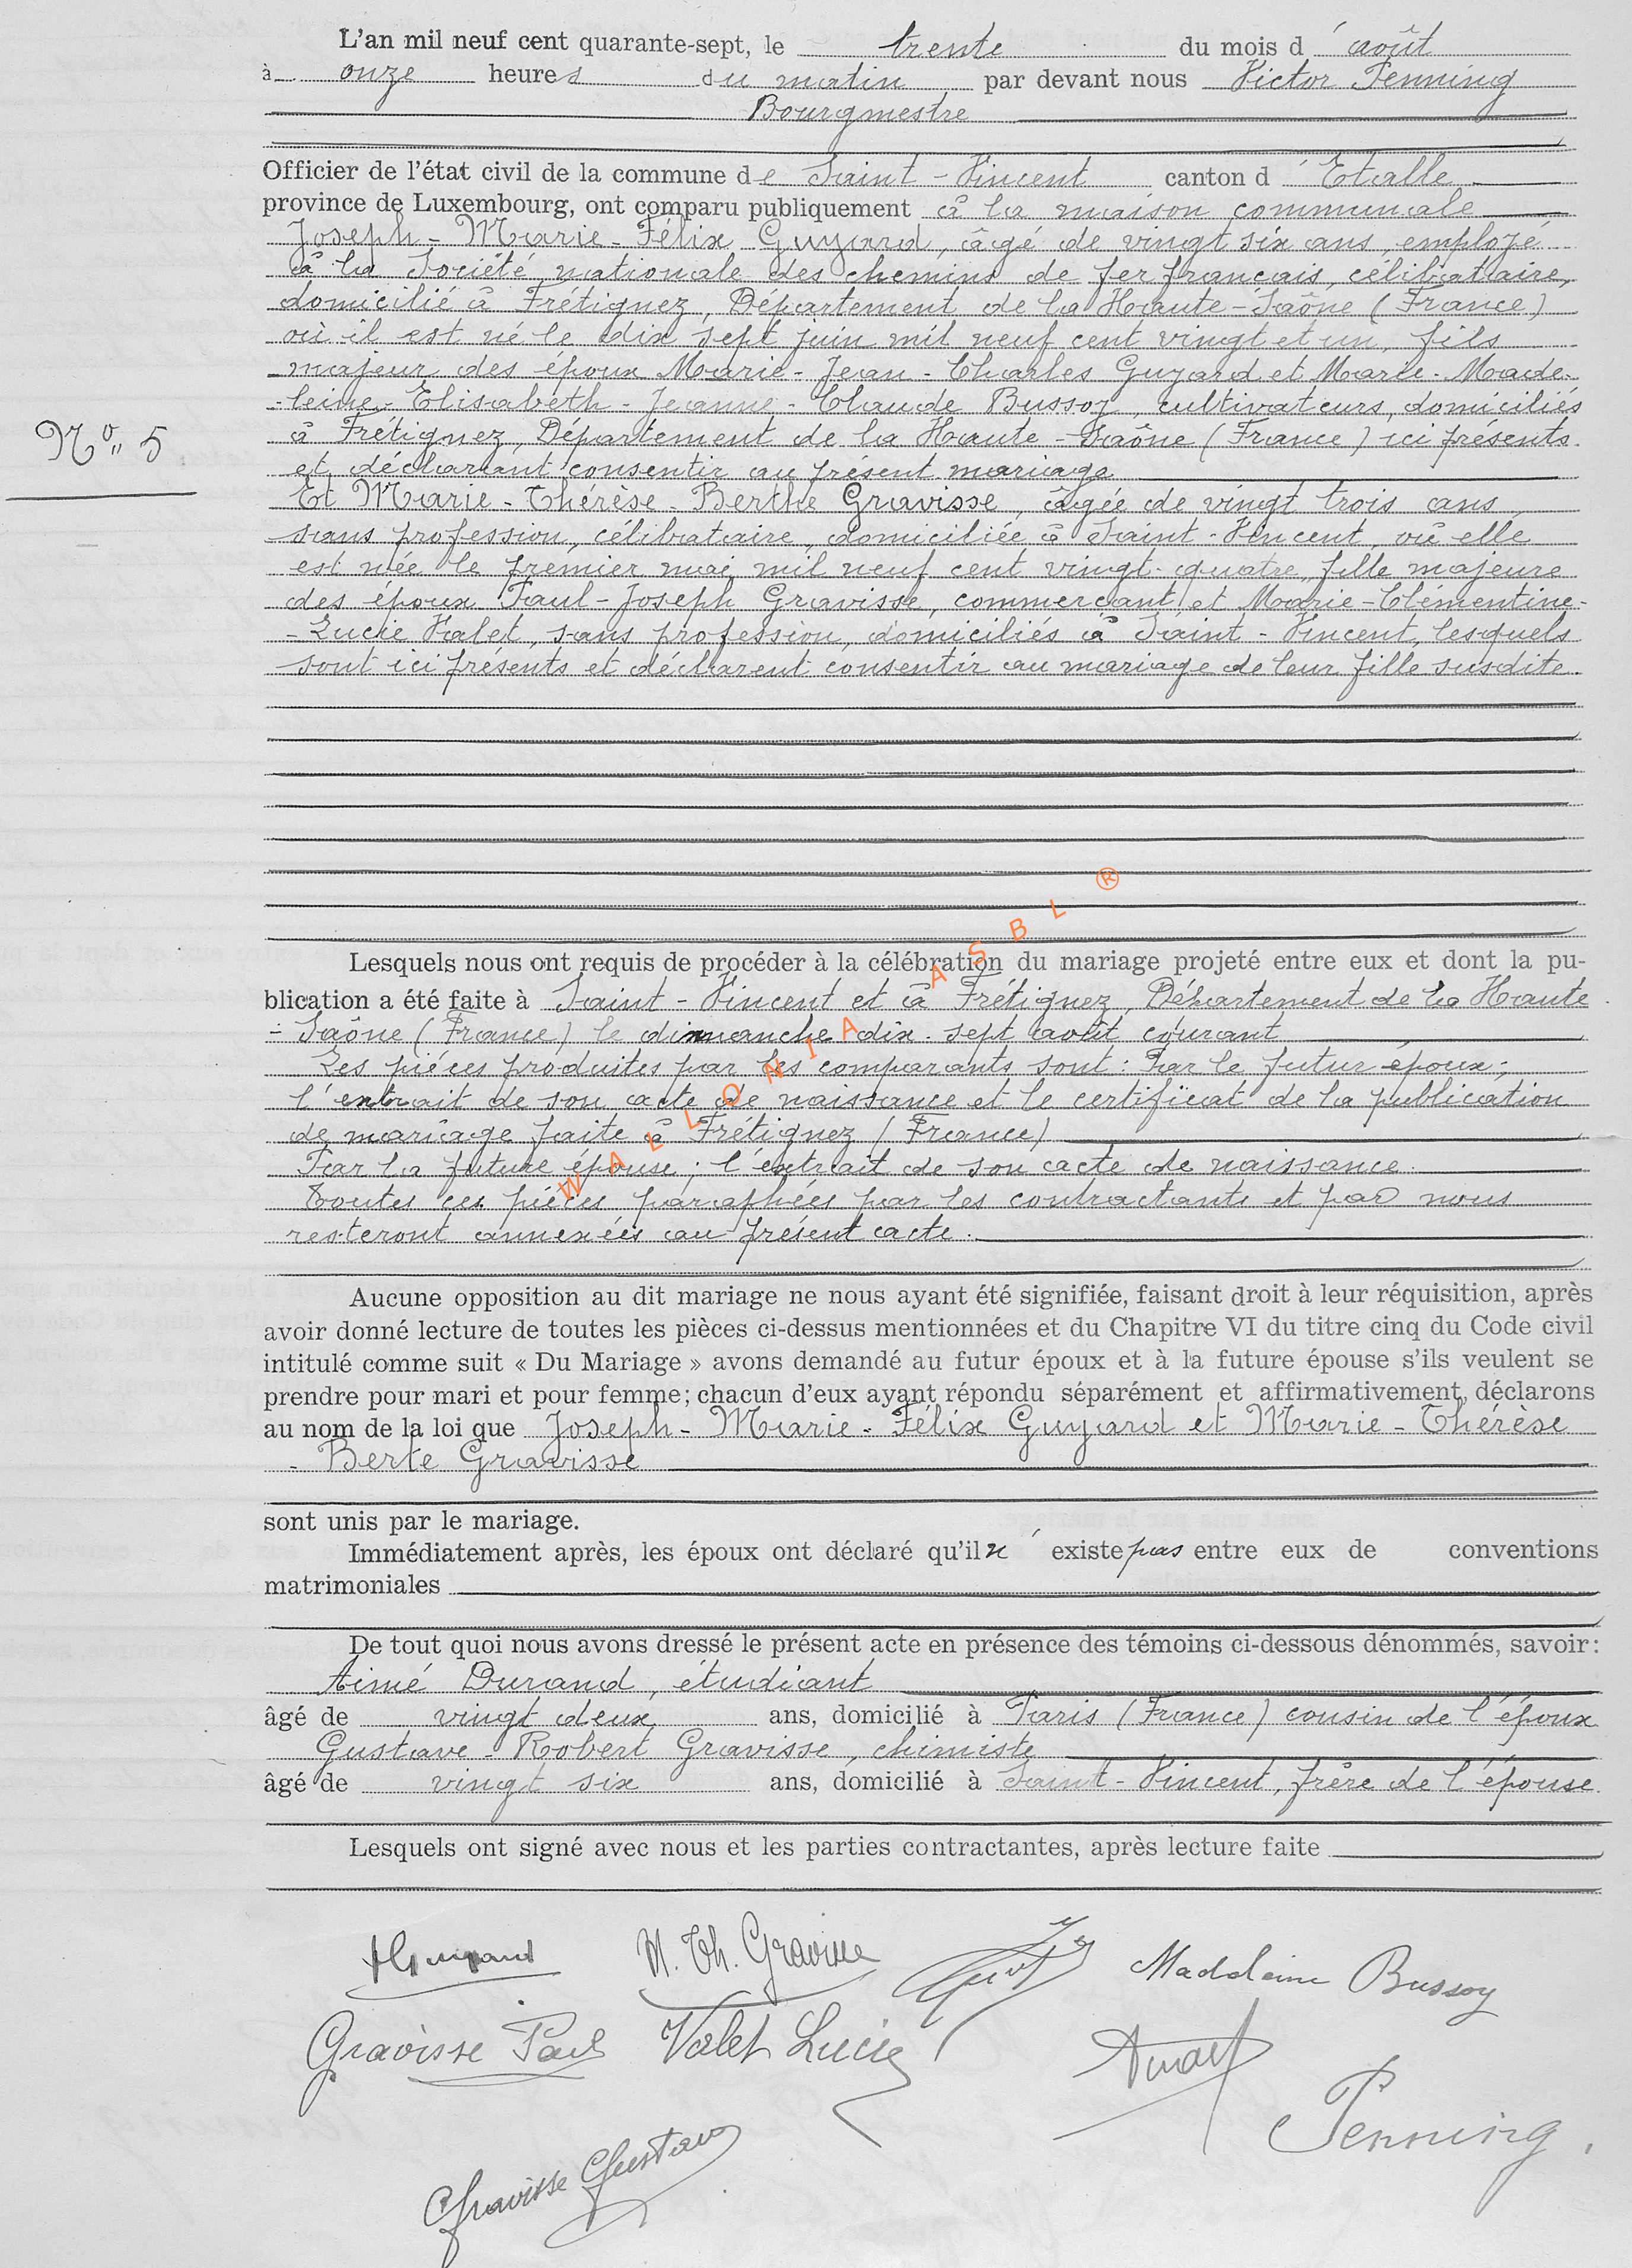 L'an mil neuf cent quarante-sept, le trente du mois d'août
à onze heures du matin par devant nous Victor Penning
Bourgmestre
Officier de l'état civil de la commune de Saint-Vincent canton d'Etalle
province de Luxembourg, ont comparu publiquement à la maison communale
Joseph-Marie-Félix Guyard, âgé de vingt six ans, employé
à la Société nationale des chemins de fer français, célibataire,
domicilié à Frétignez, Département de la Haute-Saône (France)
où il est né le dix sept juin mil neuf cent vingt et un, fils
majeur des époux Marie-Jean-Charles Guyard et Marie-Made-
-leine-Elisabeth-Jeanne-Claude Bussoy, cultivateurs, domiciliés
à Frétignez, Département de la Haute-Saône (France) ici présents
et déclarant consentir au présent mariage
No 5
Et Marie-Thérèse-Berthe Gravisse, âgée de vingt trois ans
sans profession, célibataire, domiciliée à Saint-Vincent, où elle
est née le premier mai mil neuf cent vingt-quatre, fille majeure
des époux Paul-Joseph Gravisse, commerçant et Marie-Clémentine-
-Lucie Valet, sans profession, domiciliés à Saint-Vincent, lesquels
sont ici présents et déclarent consentir au mariage de leur fille susdite.
Lesquels nous ont requis de procéder à la célébration du mariage projeté entre eux et dont la pu-
blication a été faite à Saint-Vincent et à Frétignez, Département de la Haute
-Saône (France) le dimanche dix-sept août courant
Les pièces produites par les comparants sont: Par le futur époux;
l'extrait de son acte de naissance et le certificat de la publication
de mariage faite à Frétignez (France)
Par la future épouse; l'extrait de son acte de naissance.
Toutes ces pièces paraphées par les contractants et par nous
resteront annexées au présent acte.
WALLONIA ASBL ®
Aucune opposition au dit mariage ne nous ayant été signifiée, faisant droit à leur réquisition, après
avoir donné lecture de toutes les pièces ci-dessus mentionnées et du Chapitre VI du titre cinq du Code civil
intitulé comme suit « Du Mariage » avons demandé au futur époux et à la future épouse s'ils veulent se
prendre pour mari et pour femme; chacun d'eux ayant répondu séparément et affirmativement, déclarons
au nom de la loi que Joseph-Marie-Félix Guyard et Marie-Thérèse
-Berte Gravisse
sont unis par le mariage.
Immédiatement après, les époux ont déclaré qu'il n'existe pas entre eux de conventions
matrimoniales
De tout quoi nous avons dressé le présent acte en présence des témoins ci-dessous dénommés, savoir:
Aimé Durand, étudiant
âgé de vingt deux ans, domicilié à Paris (France) cousin de l'époux
Gustave-Robert Gravisse, chimiste
âgé de vingt six ans, domicilié à Saint-Vincent, frère de l'épouse.
Lesquels ont signé avec nous et les parties contractantes, après lecture faite
M. Th. Gravisse Madeleine Bussoy
Gravisse Paul Valet Lucie
Penning
Gravisse Gustave